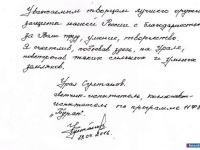 Уважаемым творцам лучшего оружия
защиты нашей России с благодарностью
за Ваш труд, умение, творчество.
Я счастлив, побывав здесь, на Урале,
повстречав таких сильных и умных
земляков.
Урал Султанов
летчик-испытатель, космонавт-
испытатель по программе
"Буран".